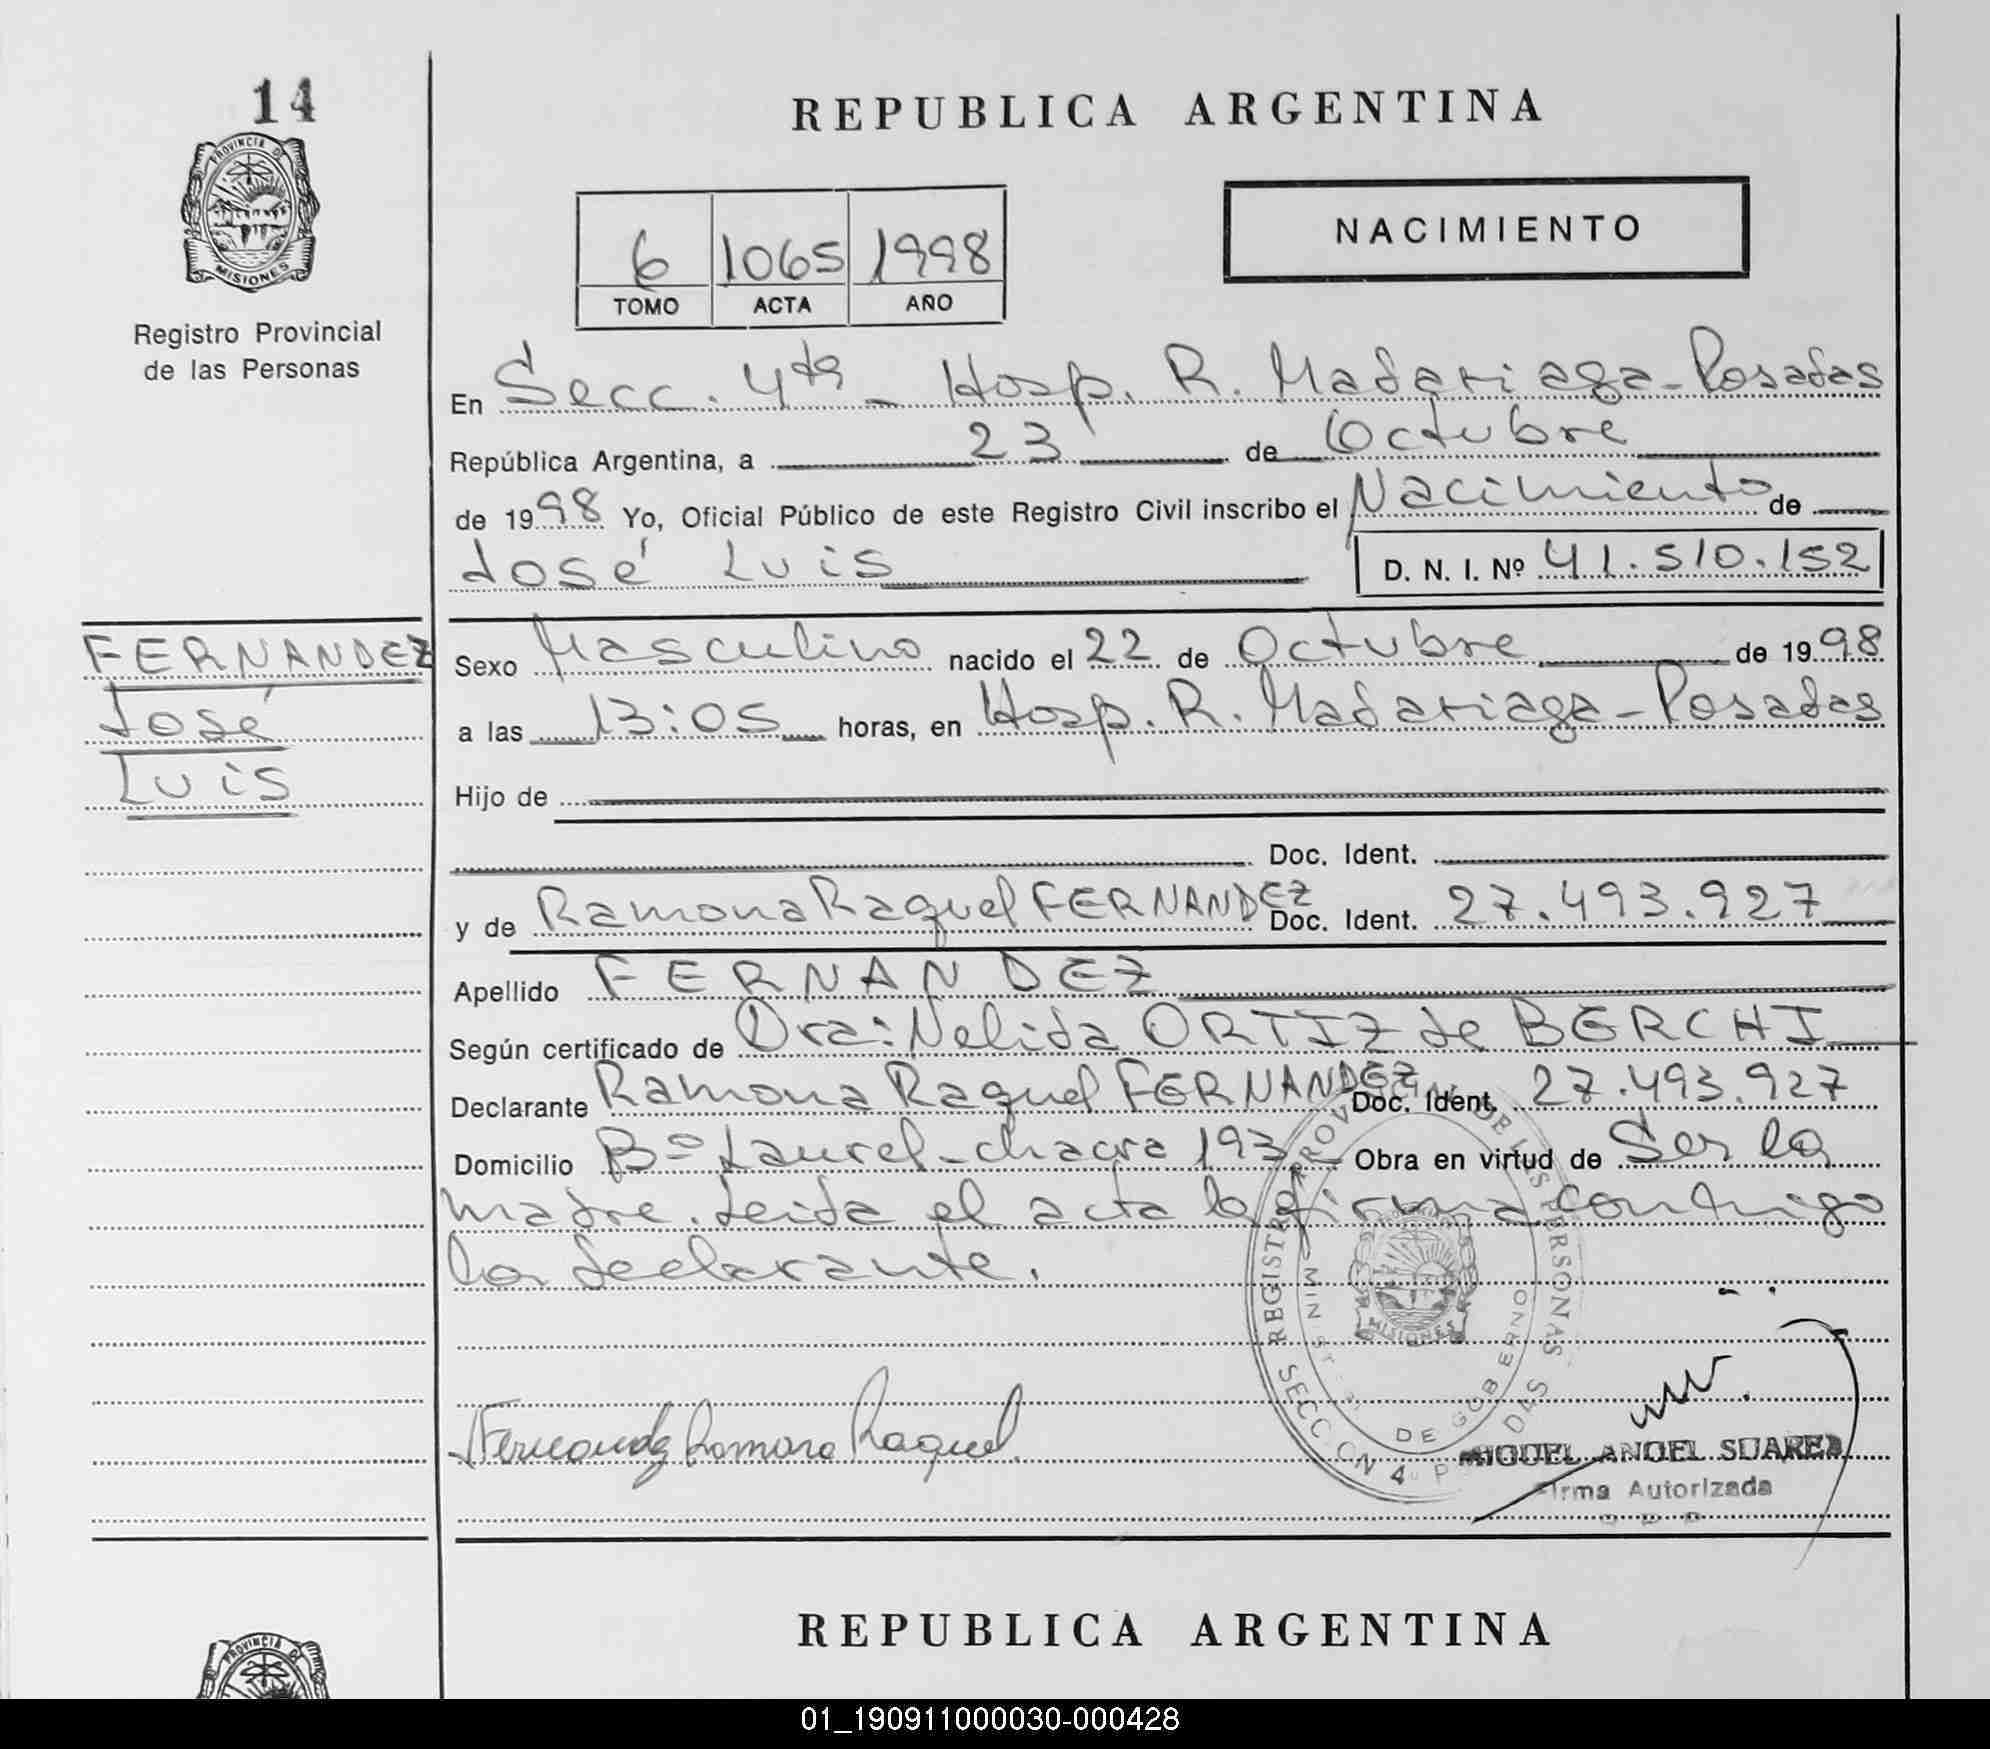 14
PROVINCIA DE
MISIONES
Registro Provincial
de las Personas
REPUBLICA ARGENTINA
6 1065 1998
TOMO ACTA AÑO
NACIMIENTO
En Secc. 4ta - Hosp. R. Madariaga - Posadas
República Argentina, a 23 de Octubre
de 1998 Yo, Oficial Público de este Registro Civil inscribo el Nacimiento de
José Luis D. N. I. Nº 41.510.152
FERNANDEZ
José
Luis
Sexo Masculino nacido el 22 de Octubre de 1998
a las 13:05 horas, en Hosp. R. Madariaga - Posadas
Hijo de
Doc. Ident.
y de Ramona Raquel FERNANDEZ Doc. Ident. 27.493.927
Apellido FERNANDEZ
Según certificado de Dra: Nelida ORTIZ de BERCHI
Declarante Ramona Raquel FERNANDEZ Doc. Ident. 27.493.927
Domicilio Bº Laurel - chacra 193 Obra en virtud de Ser la
madre. Leida el acta la firma conmigo
la declarante.
REGISTRO PROVINCIAL DE LAS PERSONAS
DE GOBERNO
MISIONES
SECCION 4
Fernandez Ramona Raquel
MIGUEL ANGEL SUAREZ
Firma Autorizada
REPUBLICA ARGENTINA
PROVINCIA DE
01_190911000030-000428